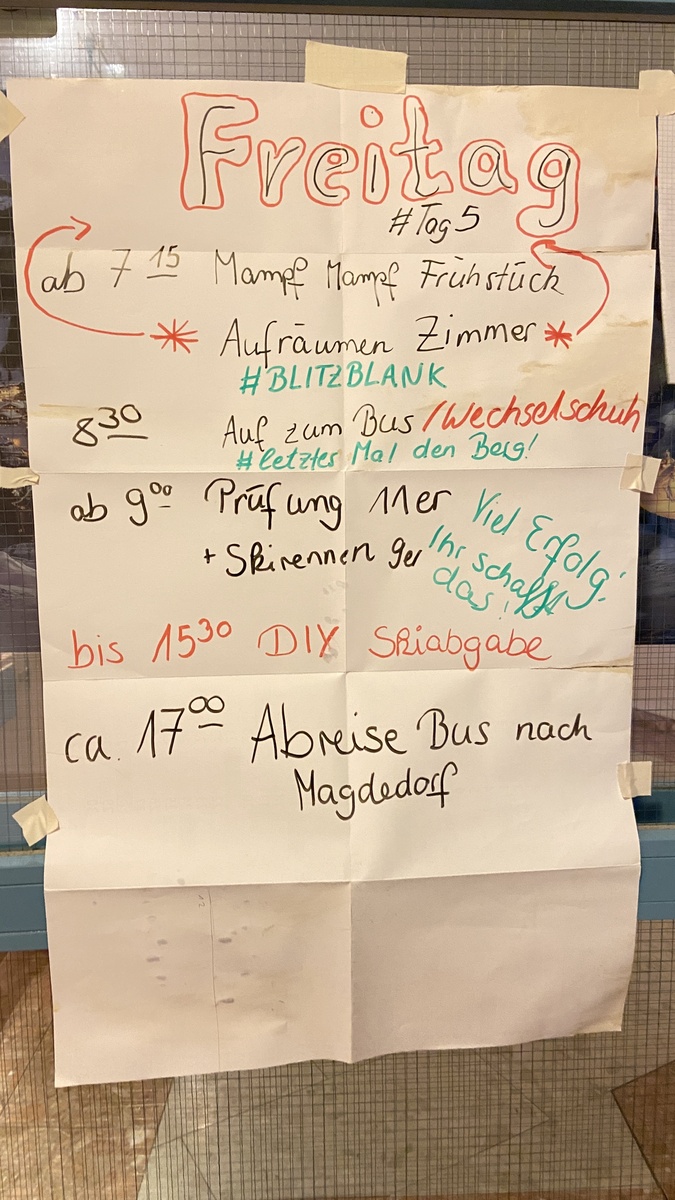 Freitag
#Tag 5
ab 7 15 Mampf Mampf Frühstück
* Aufräumen Zimmer *
#BLITZBLANK
8 30 Auf zum Bus / Wechselschuh
#letztes Mal den Berg!
ab 9 00 Prüfung 11er
+ Skirennen 9er
Viel Erfolg!
Ihr schafft
das!
bis 15 30 DIY Skiabgabe
ca. 17 00 Abreise Bus nach
Magdedorf